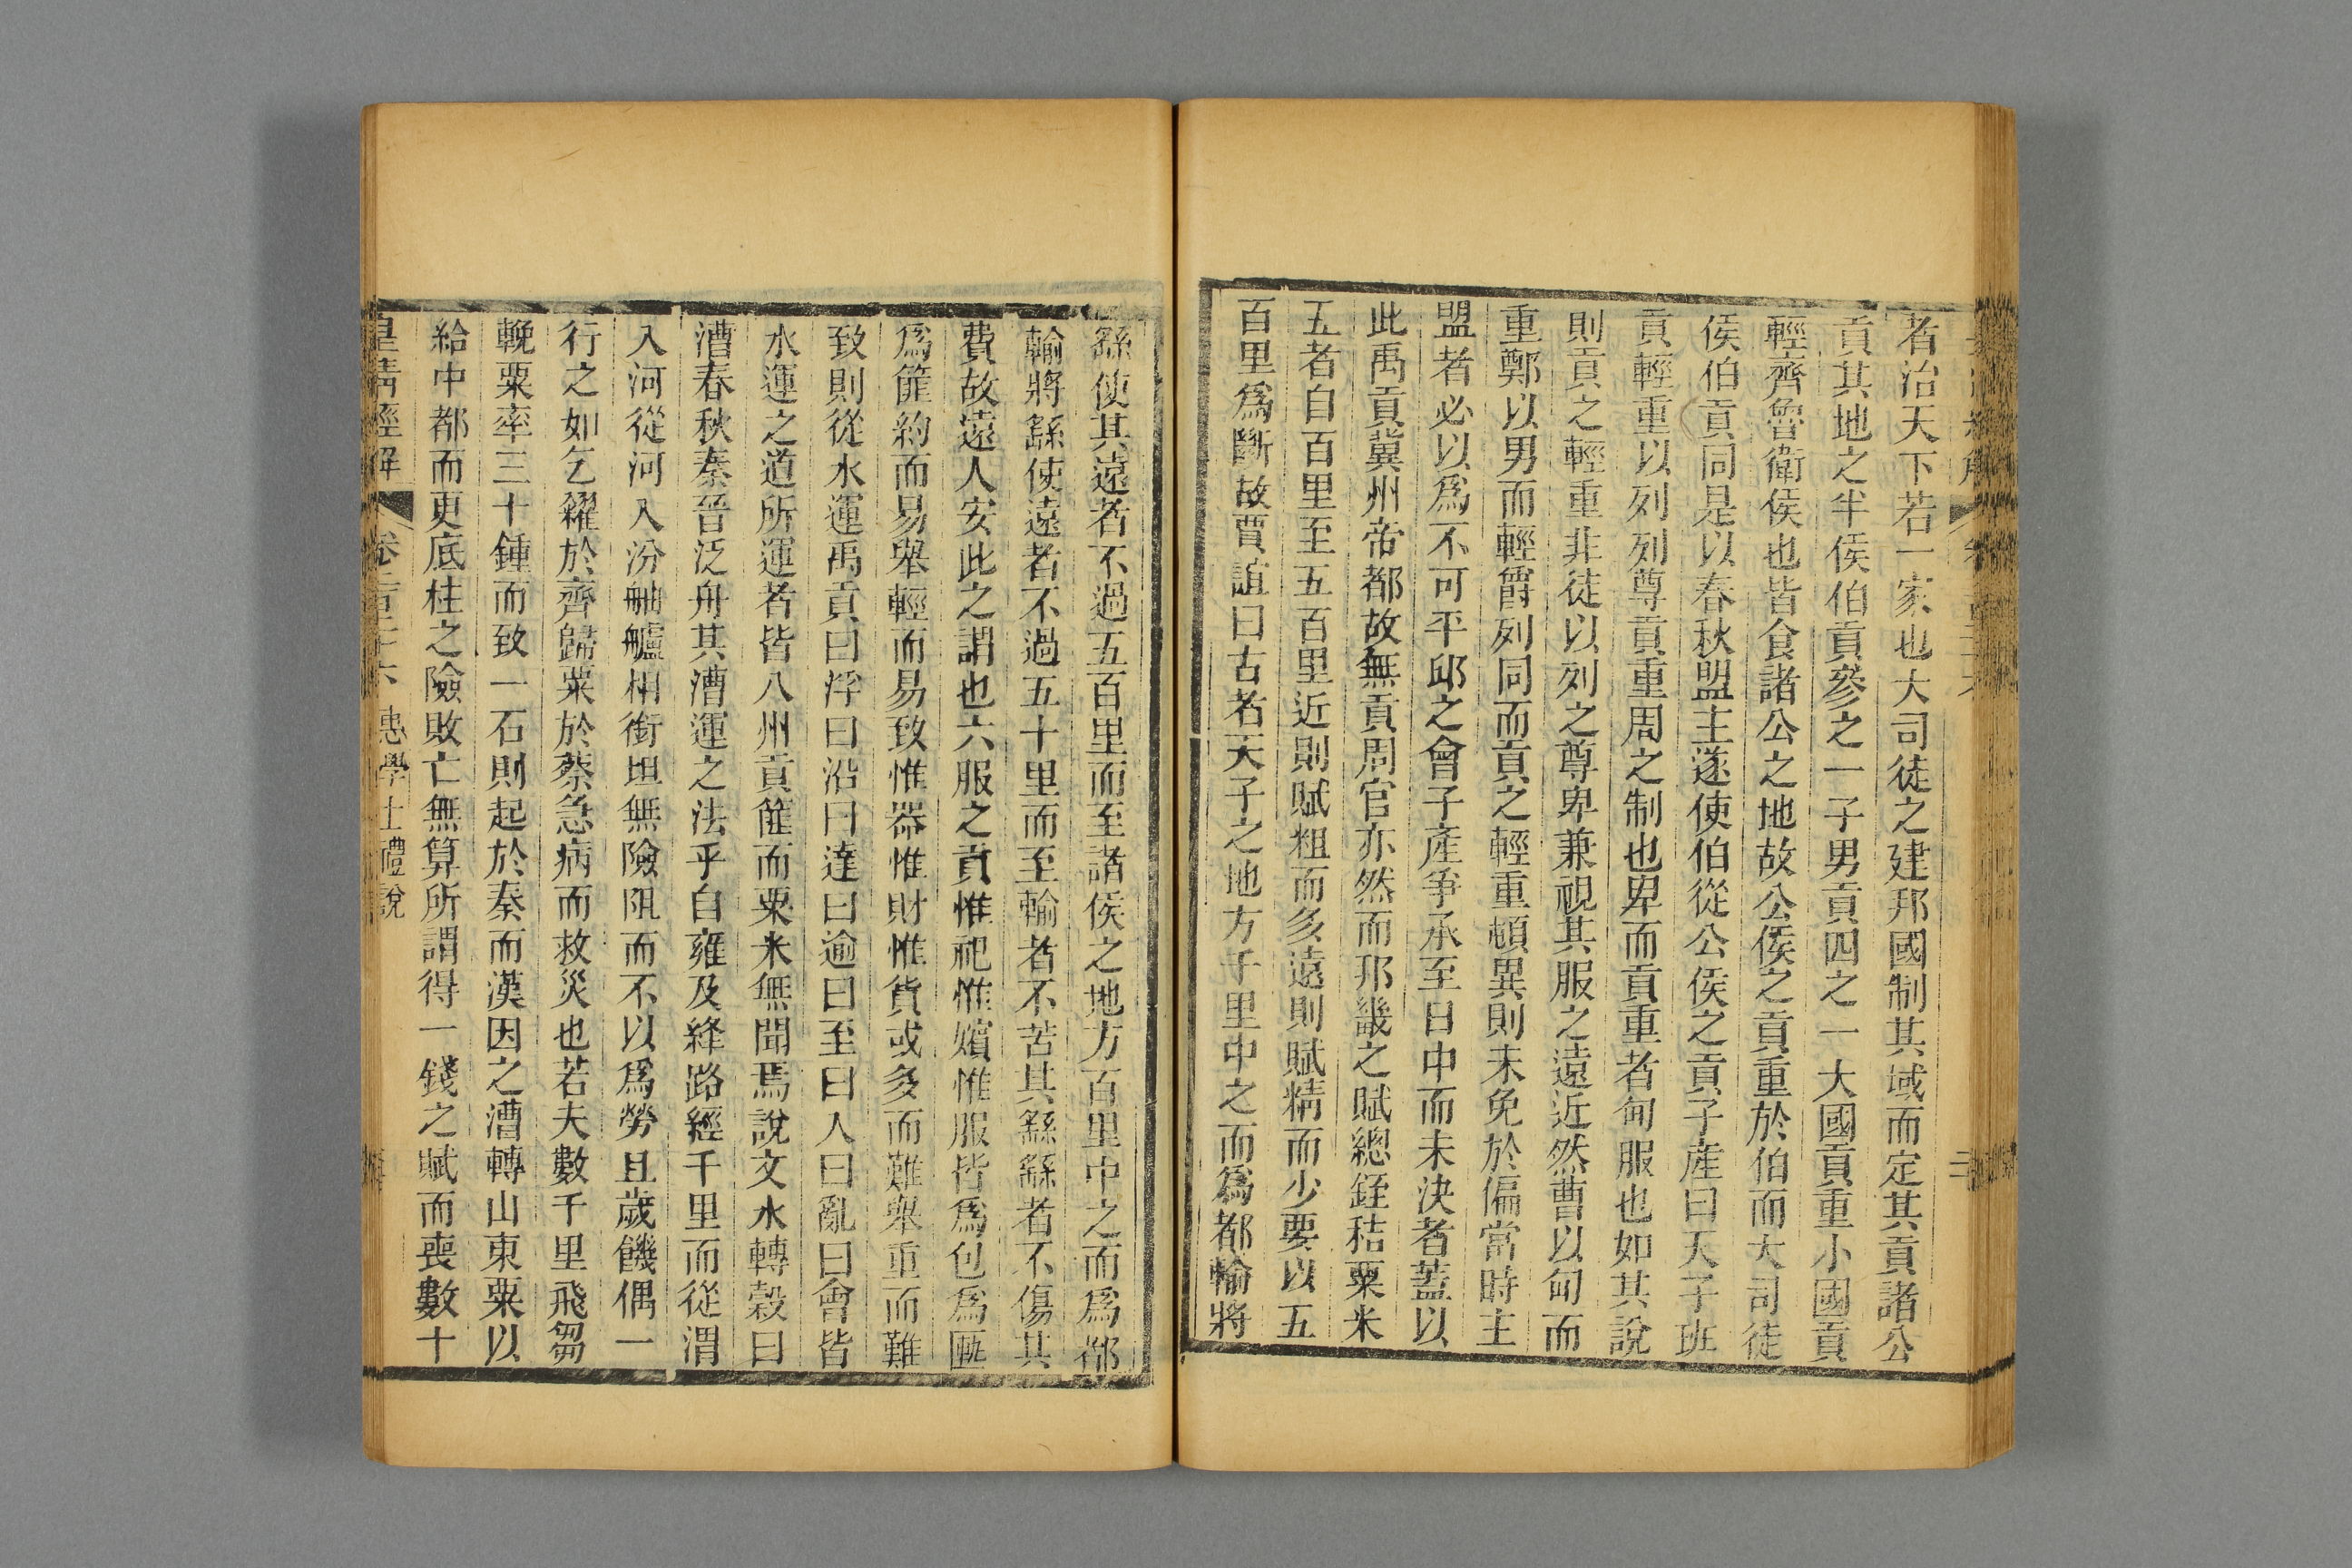 者治天下若一家也大司徒之建邦國制其域而定其貢諸公
貢其地之半侯伯貢參之一子男貢四之一大國貢重小國貢
輕齊魯衛侯也皆食諸公之地故公侯之貢重於伯而大司徒
侯伯貢同是以春秋盟主遂使伯從公侯之貢子產曰天子班
貢輕重以列列尊貢重周之制也卑而貢重者甸服也如其說
則貢之輕重非徒以列之尊卑兼視其服之遠近然曹以甸而
重鄭以男而輕爵列同而貢之輕重頓異則未免於偏當時主
盟者必以爲不可平邱之會子產爭承至日中而未決者蓋以
此禹貢冀州帝都故無貢周官亦然而邦畿之賦總銍秸粟米
五者自百里至五百里近則賦粗而多遠則賦精而少要以五
百里爲斷故賈誼曰古者天子之地方千里中之而爲都輸將
繇使其遠者不過五百里而至諸侯之地方百里中之而爲都
輸將繇使遠者不過五十里而至輸者不苦其繇繇者不傷其
費故遠人安此之謂也六服之貢惟祀惟嬪惟服皆爲包爲匭
爲篚約而易舉輕而易致惟器惟財惟貨或多而難舉重而難
致則從水運禹貢曰浮曰沿曰達曰逾曰至曰入曰亂曰會皆
水運之道所運者皆八州貢篚而粟米無聞焉說文水轉榖曰
漕春秋秦晉泛舟其漕運之法乎自雍及絳路經千里而從渭
入河從河入汾舳艫相銜坦無險阻而不以爲勞且歲饑偶一
行之如乞糴於齊歸粟於蔡急病而救災也若夫數千里飛芻
輓粟率三十鍾而致一石則起於秦而漢因之漕轉山東粟以
給中都而更底柱之險敗亡無算所謂得一錢之賦而喪數十
皇清經解 卷二百二十六 惠學士禮說